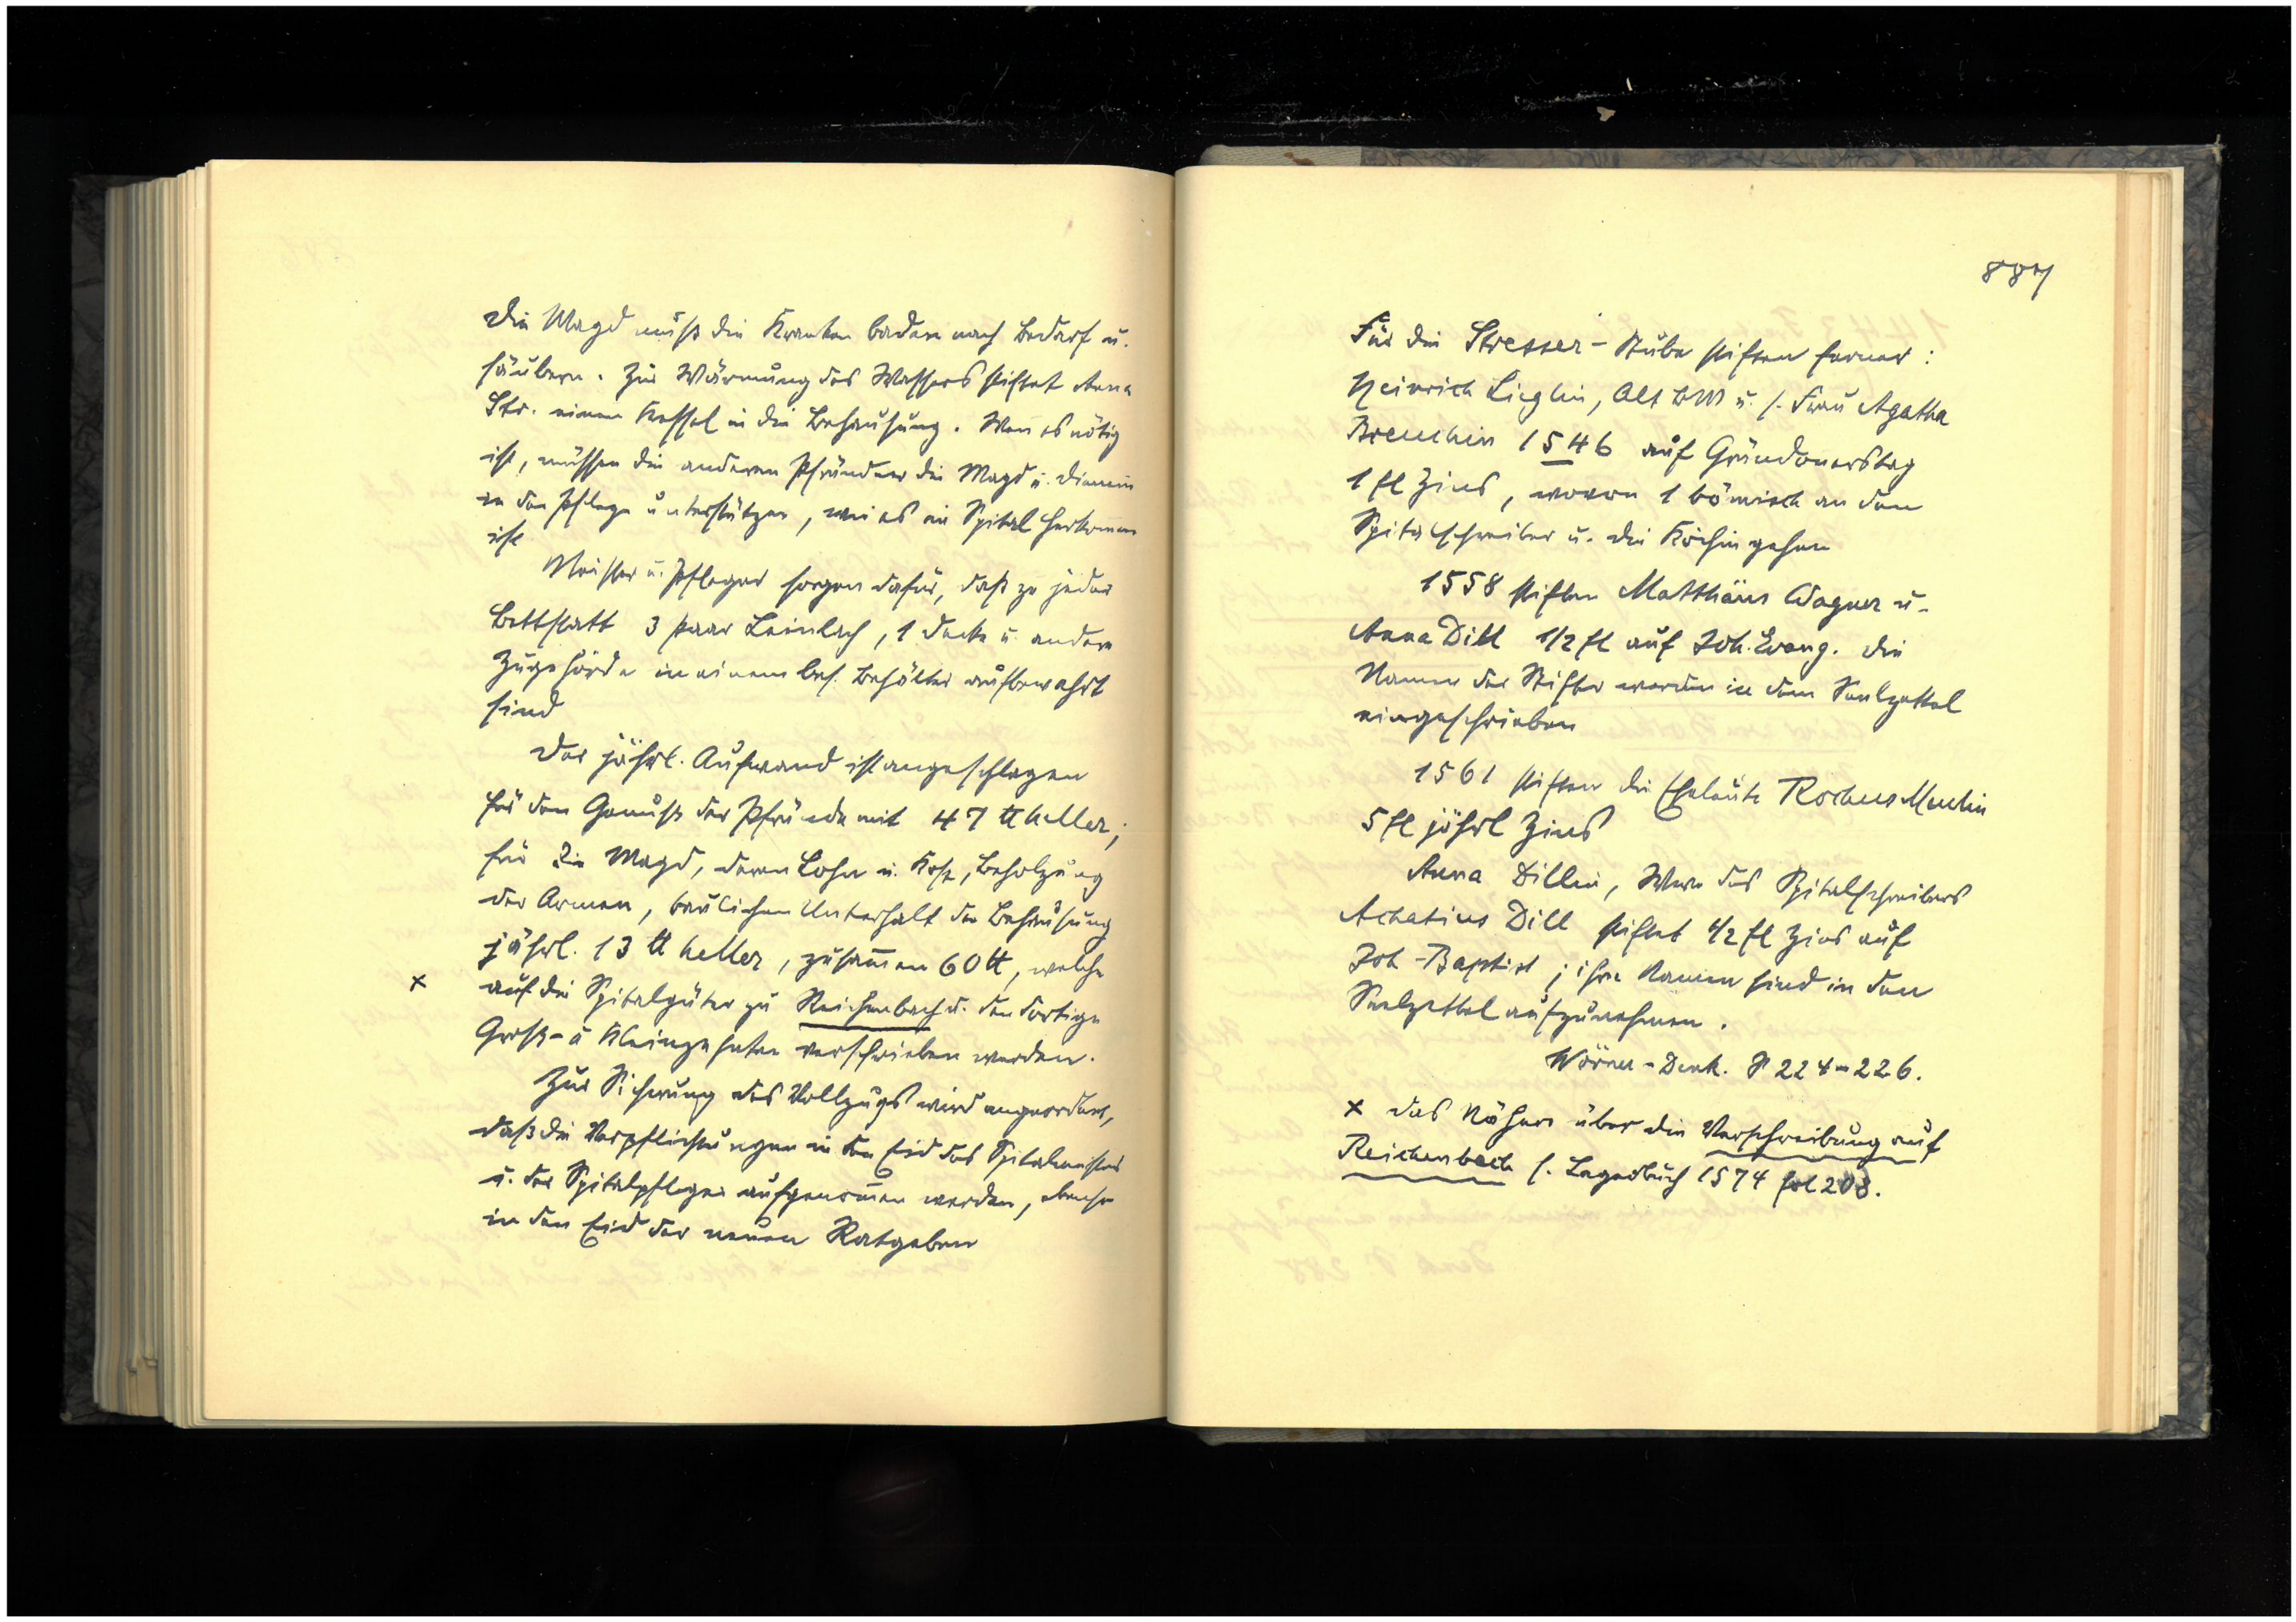 Die Magd muß die Kranken baden nach Bedarf u.
säubern. Zur Wärmung des Wassers stiftet Anna
Str. einen Kessel in die Behausung. Wenn es nötig
ist, müssen die anderen Pfründner die Magd u. Dienerin
in der Pflege unterstützen, wie es im Spital Herkommen
ist
Meister u. Pfleger sorgen dafür, daß zu jeder
Bettstatt 3 Paar Leinlach, 1 Decke u. andere
Zugehörde in einem bes. Behälter aufbewahrt
sind
Der jährl. Aufwand ist angeschlagen
für den Genuß der Pfründe mit 47 ℔ heller;
für die Magd, deren Lohn u. Kost, Beholzung
der Armen, baulichen Unterhalt der Behausung
jährl. 13 ℔ heller, zusam̄en 60 ℔, welche
x auf die Spitalgüter zu Reichenbach u. den dortigen
Groß- u Kleinzehnten verschrieben werden.
Zur Sicherung des Vollzugs wird angeordnet,
daß die Verpflichtungen in den Eid des Spitalmeisters
u. der Spitalpfleger aufgenom̄en werden, ebenso
in den Eid der neuen Ratgeben
887
Für die Stresser-Stube stiften ferner:
Heinrich Lieglin, Alt BM u. s. Frau Agatha
1546 auf Gründonnerstag
1 fl Zins, wovon 1 bömisch an den
Spitalschreiber u. die Köchin gehen
1558 stiften Matthäus Wagner u.
Anna Dill 1/2 fl auf Joh. Evang. Die
Namen der Stifter werden in dem Seelzettel
eingeschrieben
1561 stiften die Eheleute Rochus Merlin
5 fl jährl Zins
Anna Dillin, Witwe des Spitalschreibers
Achatius Dill stiftet 1/2 fl Zins auf
Joh-Baptist; ihre Namen sind in den
Seelzettel aufzunehmen.
Wörner-Denk. S 224-226.
x Das Nähere über die Verschreibung auf
Reichenbach s. Lagerbuch 1574 fol 208.